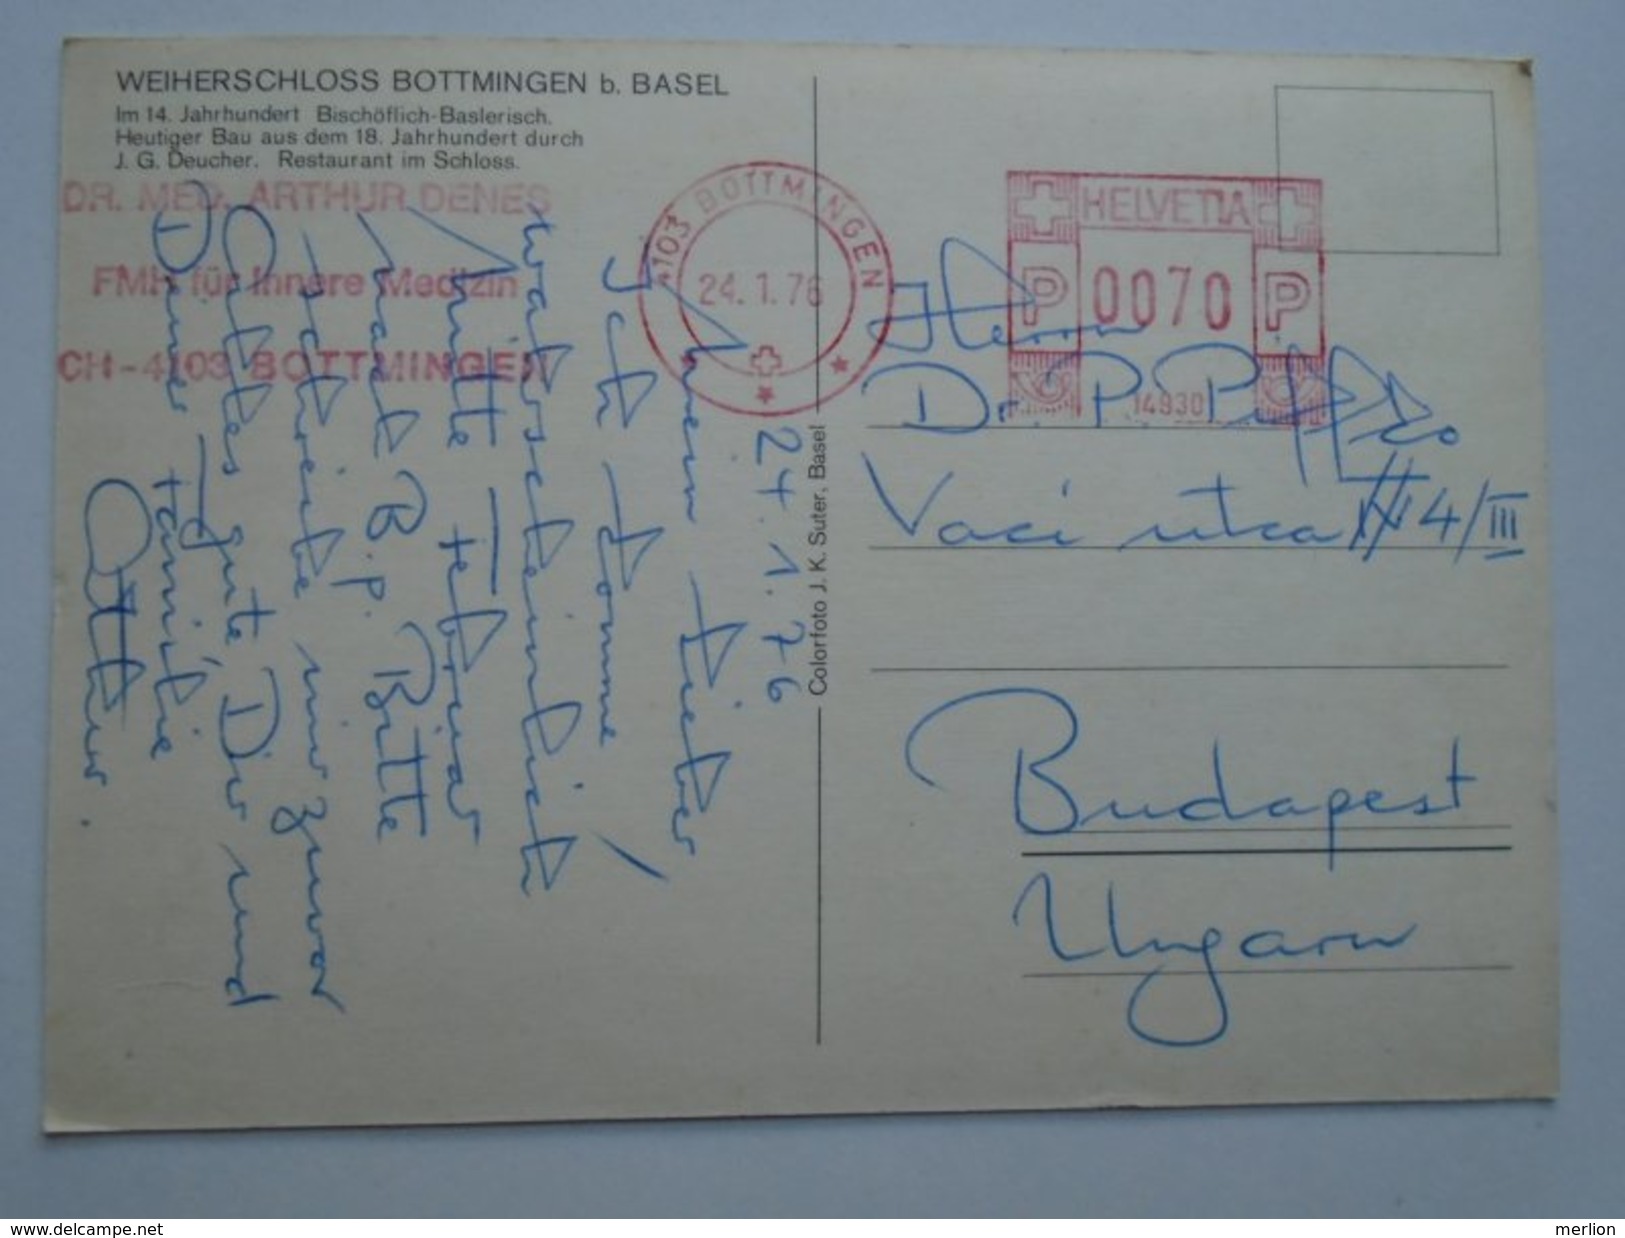 WEIHERSCHLOSS BOTTMINGEN b. BASEL
Im 14. Jahrhundert Bischöflich-Baslerisch.
Heutiger Bau aus dem 18. Jahrhundert durch
J. G. Deucher. Restaurant im Schloss.
DR. MED. ARTHUR DENES
FMH für Innere Medizin
CH-4103 BOTTMINGEN
4103 BOTTMINGEN
24.1.76
HELVETIA
P 0070 P
14930
24.1.76
Mein lieber
Ich komme
wahrscheinlich
Mitte Februar
nach B.P. Bitte
schreibe mir zuvor
alles gute Dir und
Deiner Familie
Colorfoto J. K. Suter, Basel
Herrn
Dr. P.
Vaci utca 4/III
Budapest
Ungarn
www.delcampe.net
merlion